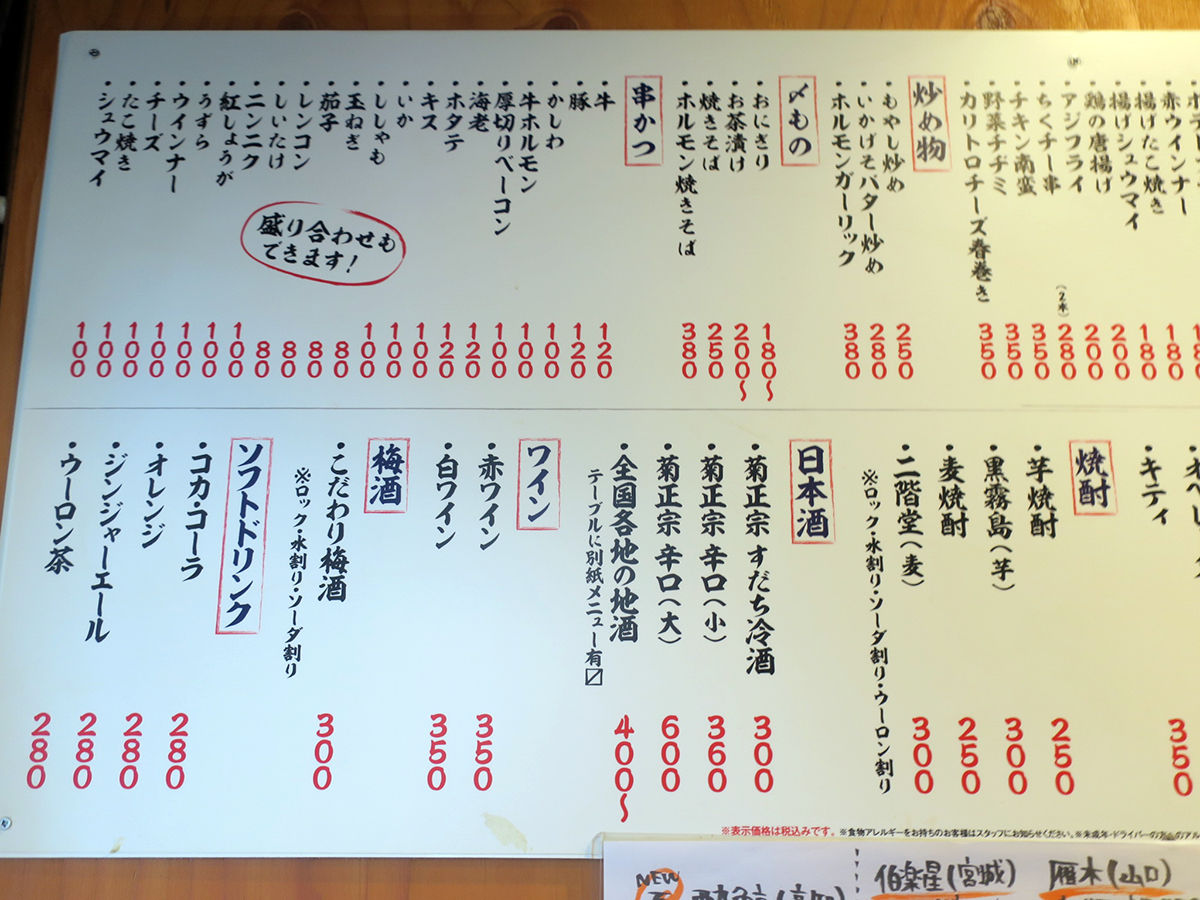 ・赤ウインナー
・揚げたこ焼き 180
・揚げシュウマイ 180
・鶏の唐揚げ 200
・アジフライ 200
・ちくチー串 (2本) 280
・チキン南蛮 350
・野菜チヂミ 350
・カリトロチーズ春巻き 350
炒め物
・もやし炒め 250
・いかげそバター炒め 280
・ホルモンガーリック 380
〆もの
・おにぎり 180～
・お茶漬け 200～
・焼きそば 250
・ホルモン焼きそば 380
串かつ
・牛 120
・豚 120
・かしわ 100
・牛ホルモン 100
・厚切りベーコン 100
・海老 120
・ホタテ 120
・キス 100
・いか 100
・ししゃも 100
・玉ねぎ 80
・茄子 80
・レンコン 80
・しいたけ 80
・ニンニク 100
・紅しょうが 100
・うずら 100
・ウインナー 100
・チーズ 100
・たこ焼き 100
・シュウマイ 100
盛り合わせも
できます!
・キティ 350
焼酎
・芋焼酎 250
・黒霧島(芋) 300
・麦焼酎 250
・二階堂(麦) 300
※ロック・水割り・ソーダ割り・ウーロン割り
日本酒
・菊正宗 すだち冷酒 300
・菊正宗 辛口(小) 360
・菊正宗 辛口(大) 600
・全国各地の地酒 400～
テーブルに別紙メニュー有〼
ワイン
・赤ワイン 350
・白ワイン 350
梅酒
・こだわり梅酒 300
※ロック・水割り・ソーダ割り
ソフトドリンク
・コカ・コーラ 280
・オレンジ 280
・ジンジャーエール 280
・ウーロン茶 280
※表示価格は税込みです。※食物アレルギーをお持ちのお客様はスタッフにお知らせください。※未成年・ドライバーの方
NEW
伯楽星(宮城)
雁木(山口)